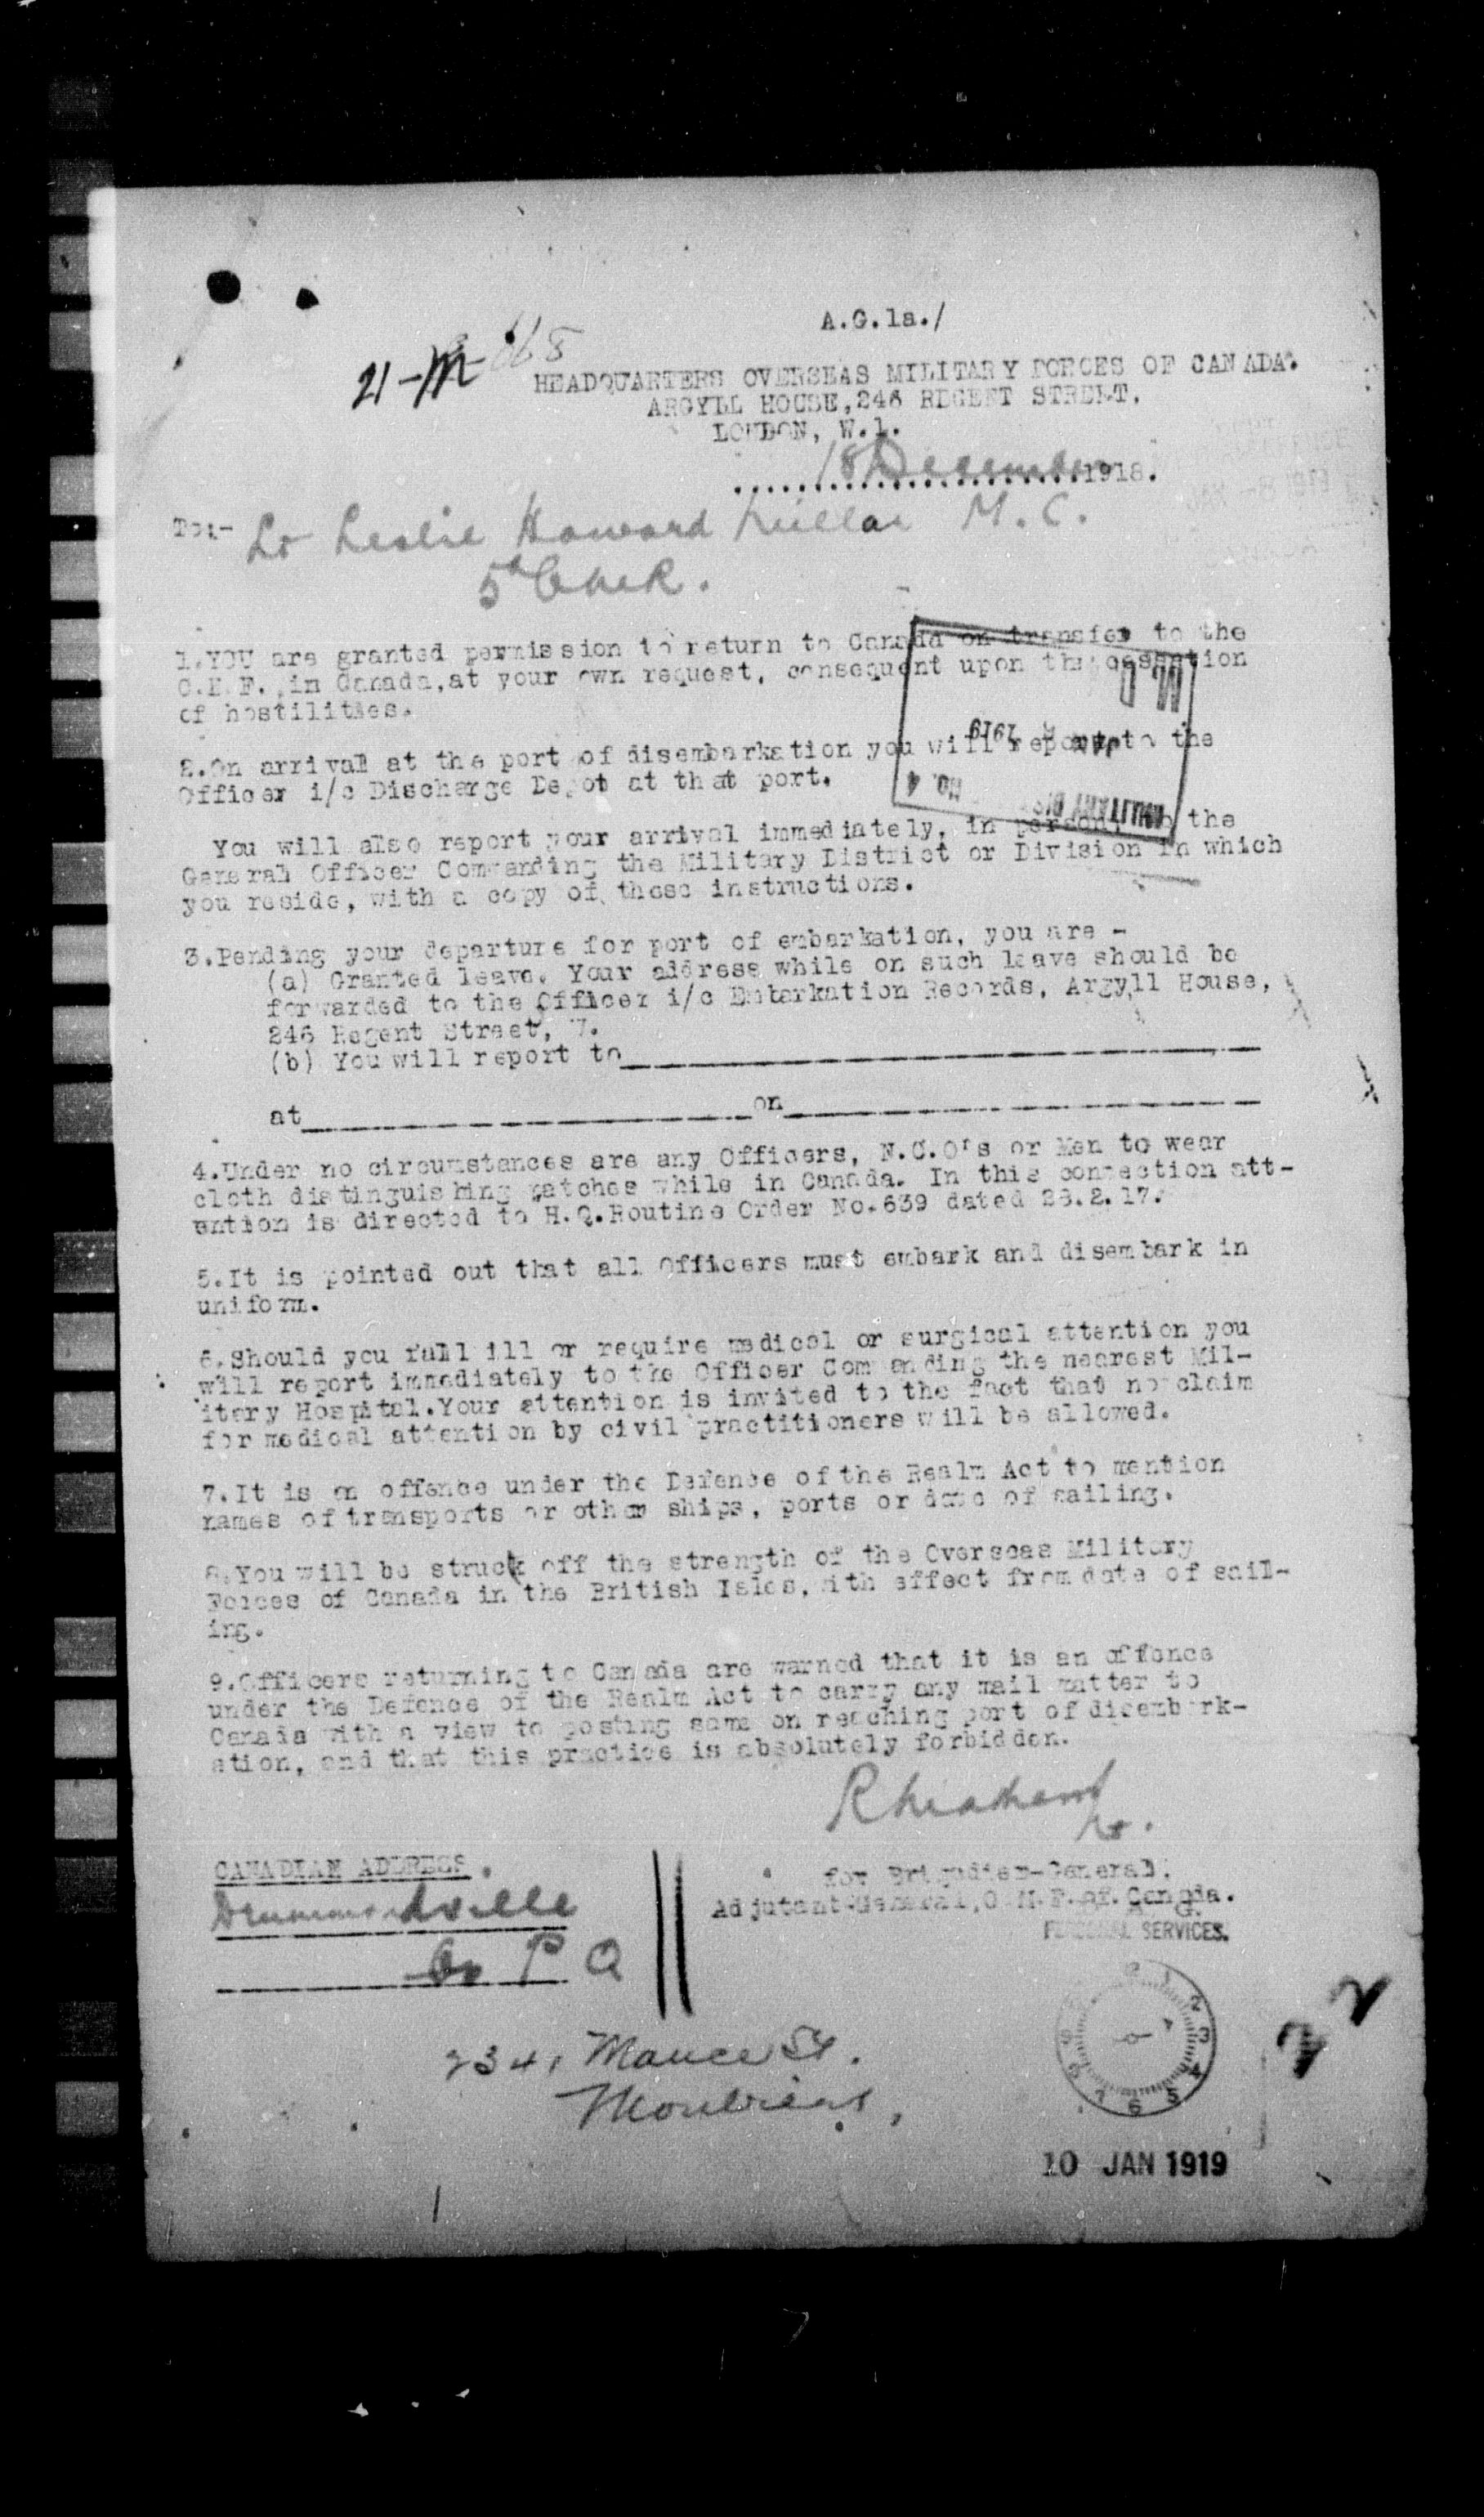 A.G.1a./
21-M- 
HEADQUARTERS OVERSEAS MILITARY FORCES OF CANADA.
ARGYLL HOUSE,246 REGENT STREET,
LONDON, W.1.
18 December 1918.
To:- Lt Leslie Howard Millar M.C.
5th C.M.R.
1.YOU are granted permission to return to Canada on transfer to the
C.E.F. in Canada,at your own request, consequent upon the cessation
of hostilities.
1919
2.On arrival at the port of disembarkation you will report to the
Officer i/c Discharge Depot at that port.
MILITARY DIST No. 4
You will also report your arrival immediately, in person, to the
General Officer Commanding the Military District or Division in which
you reside, with a copy of these instructions.
3.Pending your departure for port of embarkation, you are -
(a) Granted leave. Your address while on such leave should be
forwarded to the Officer i/c Embarkation Records, Argyll House,
246 Regent Street, W.
(b) You will report to
at on
4.Under no circumstances are any Officers, N.C.O's or Men to wear
cloth distinguishing patches while in Canada. In this connection att-
ention is directed to H.Q.Routine Order No.639 dated 28.2.17.
5.It is pointed out that all Officers must embark and disembark in
uniform.
6.Should you fall ill or require medical or surgical attention you
will report immediately to the Officer Commanding the nearest Mil-
itary Hospital.Your attention is invited to the fact that no claim
for medical attention by civil practitioners will be allowed.
7.It is an offence under the Defence of the Realm Act to mention
names of transports or other ships, ports or date of sailing.
8.You will be struck off the strength of the Overseas Military
Forces of Canada in the British Isles, with effect from date of sail-
ing.
9.Officers returning to Canada are warned that it is an offence
under the Defence of the Realm Act to carry any mail matter to
Canada with a view to posting same on reaching port of disembark-
ation, and that this practice is absolutely forbidden.
Lt.
for Brigadier-General.
Adjutant-General,O.M.F.of.Canada.
PERSONAL SERVICES.
CANADIAN ADDRESS.
Drummondville
P Q
2341 Mance St.
Montreal,
1 2 3 4 5 6 7
10 JAN 1919